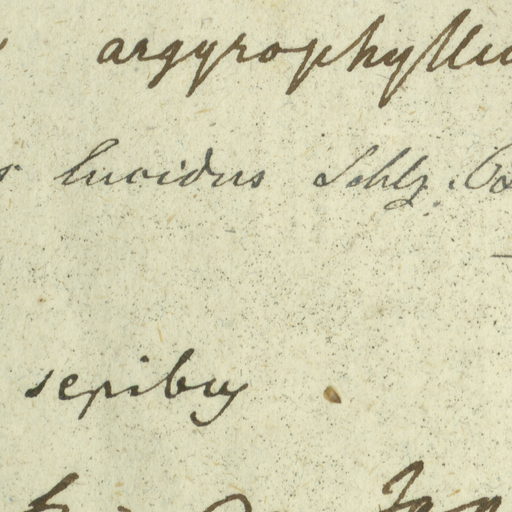 argyrophyllu
lucidus Schlz.
sepibus